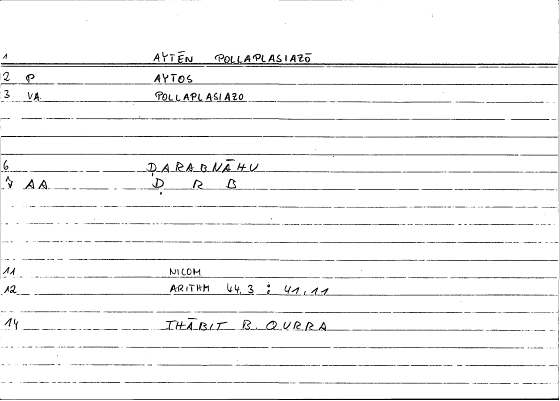 1 AYTĒN POLLAPLASIAZŌ
2 P AYTOS
3 VA POLLAPLASIAZO
6 ḌARABNĀHU
AA Ḍ R B
11 NICOM
12 ARITHM 44.3 : 41.11
14 THĀBIT B. QURRA